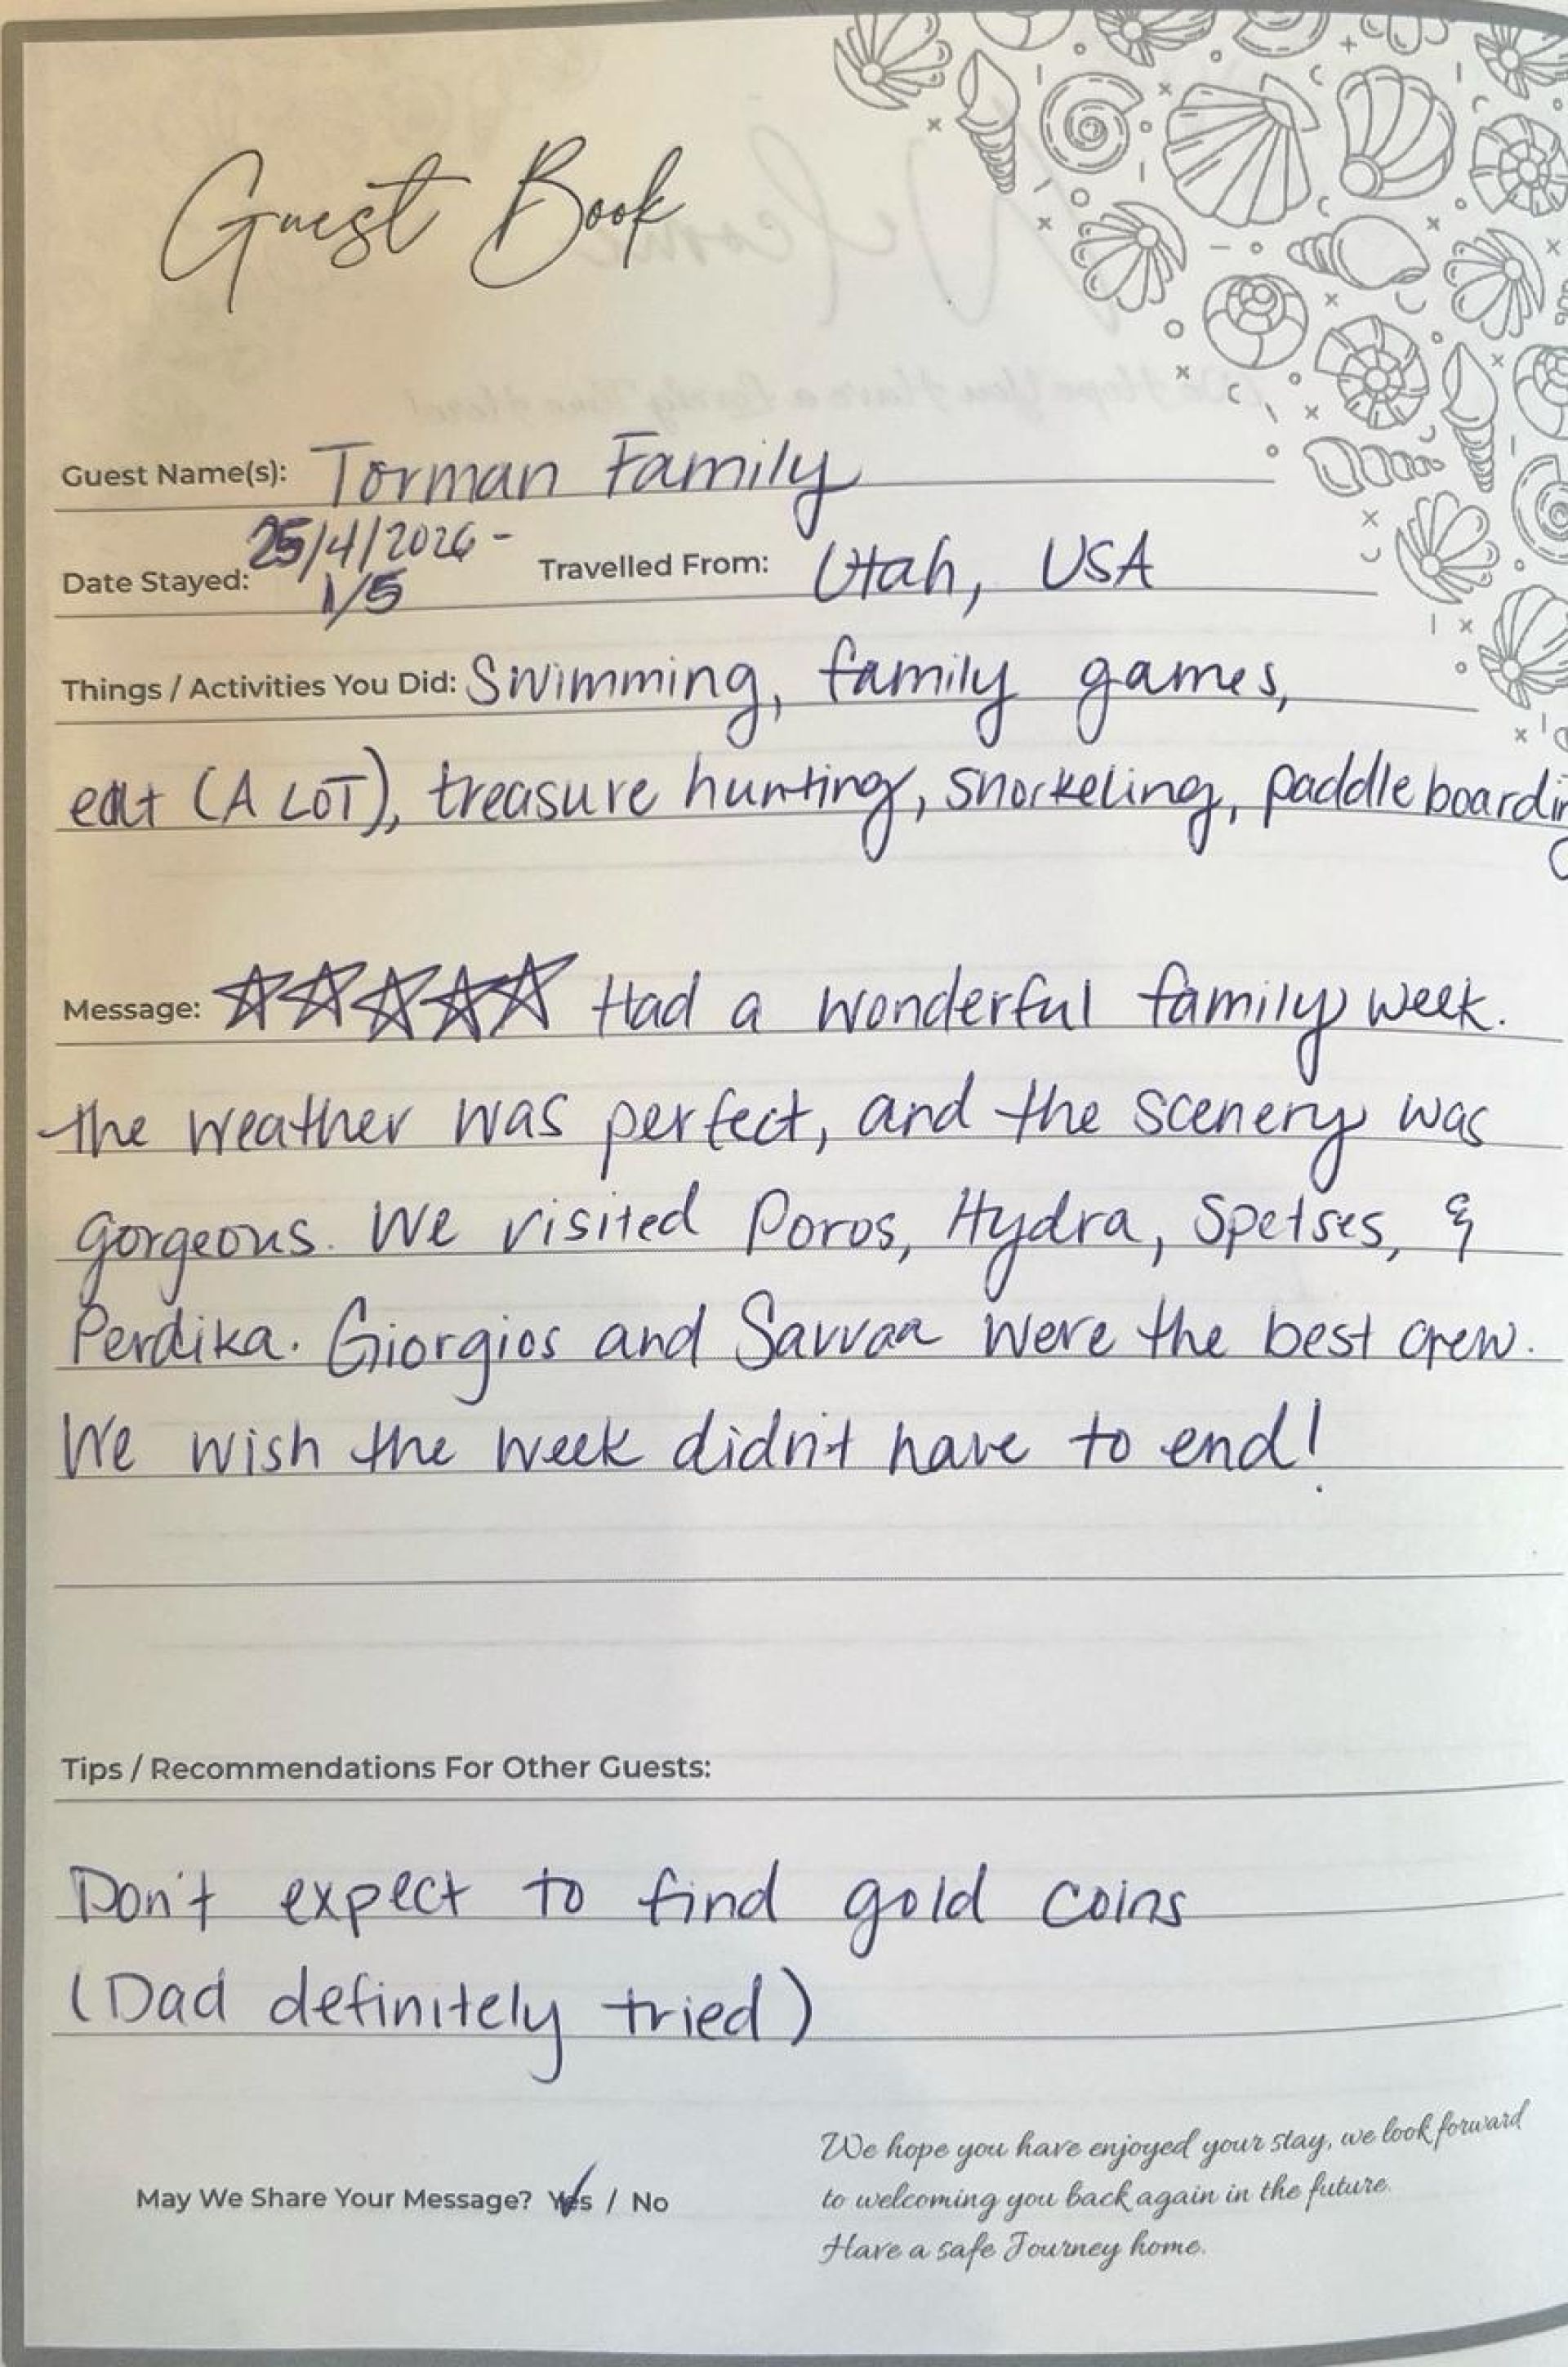 Guest Book
Guest Name(s): Torman Family
25/4/2026 -
Date Stayed: 1/5 Travelled From: Utah, USA
Things / Activities You Did: Swimming, family games,
eat (A LOT), treasure hunting, snorkeling, paddle boarding
Message: ☆☆☆☆☆ Had a wonderful family week.
The weather was perfect, and the scenery was
gorgeous. We visited Poros, Hydra, Spetses, &
Perdika. Giorgios and Savvaa were the best crew.
We wish the week didn't have to end!
Tips / Recommendations For Other Guests:
Don't expect to find gold coins
(Dad definitely tried)
May We Share Your Message? Yes / No
We hope you have enjoyed your stay, we look forward
to welcoming you back again in the future.
Have a safe Journey home.